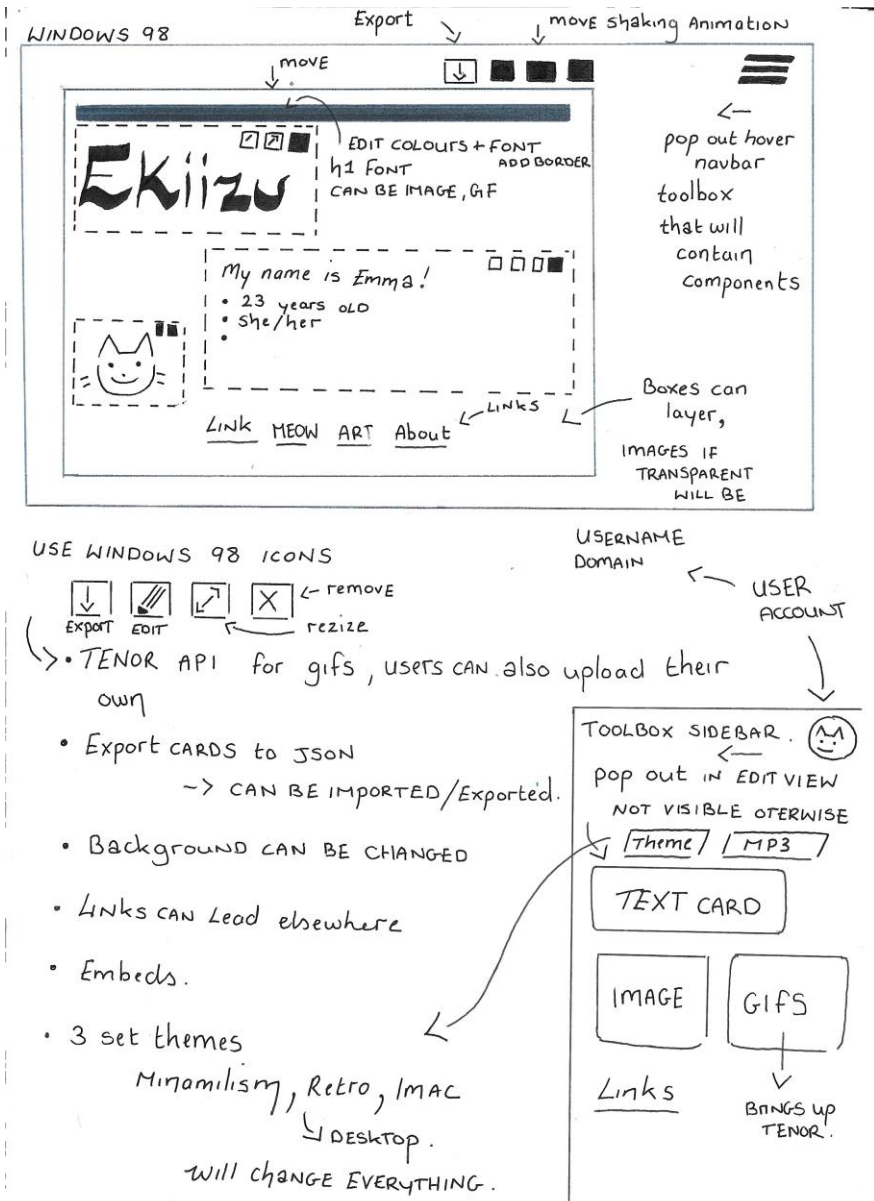 WINDOWS 98
Export
move shaking Animation
move
EDIT COLOURS + FONT
ADD BORDER
h1 FONT
CAN BE IMAGE, GIF
EKiizu
pop out hover
navbar
toolbox
that will
contain
components
My name is Emma!
• 23 years OLD
• She/her
•
Link MEOW ART About
LINKS
Boxes can
layer,
IMAGES IF
TRANSPARENT
WILL BE
USE WINDOWS 98 ICONS
Export EDIT
remove
rezize
USERNAME
DOMAIN
USER
ACCOUNT
• TENOR API for gifs, users CAN also upload their
own
• Export CARDS to JSON
~> CAN BE IMPORTED/Exported.
• Background CAN BE CHANGED
• Links CAN Lead elsewhere
• Embeds.
• 3 set themes
Minamilism, Retro, IMAC
DESKTOP.
will change EVERYTHING.
TOOLBOX SIDEBAR.
pop out IN EDIT VIEW
NOT VISIBLE OTERWISE
Theme MP3
TEXT CARD
IMAGE GIFS
Links
BRINGS UP
TENOR.